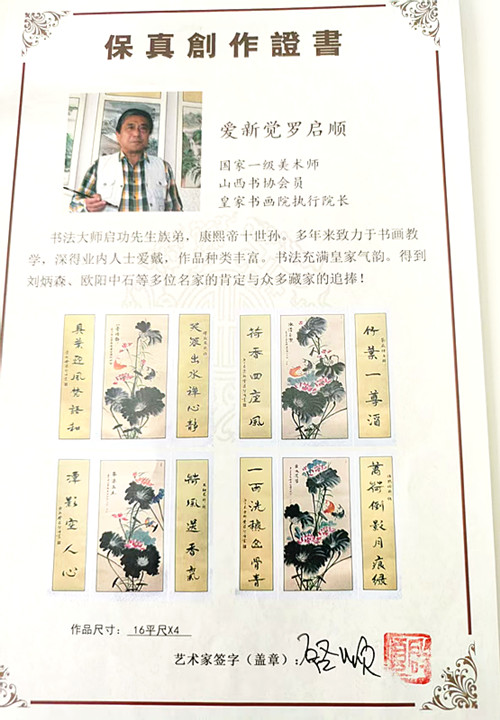 保真創作證書
爱新觉罗启顺
国家一级美术师
山西书协会员
皇家书画院执行院长
书法大师启功先生族弟，康熙帝十世孙，多年来致力于书画教
学，深得业内人士爱戴，作品种类丰富。书法充满皇家气韵。得到
刘炳森、欧阳中石等多位名家的肯定与众多藏家的追捧！
出水禅心静
荷香四座風
竹葉一尊酒
潭影空人心
荷風送香氣
荷倒影月痕緑
作品尺寸： 16平尺X4
艺术家签字（盖章）：启顺